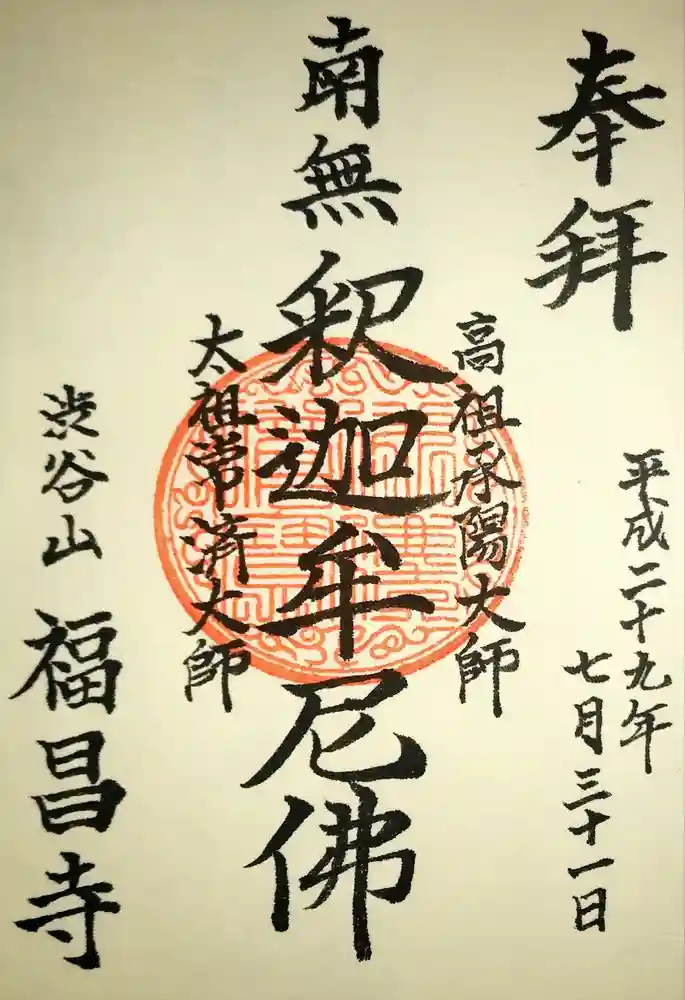 奉拝
平成二十九年
七月三十一日
高祖承陽大師
南無釈迦牟尼佛
太祖常済大師
渋谷山福昌寺